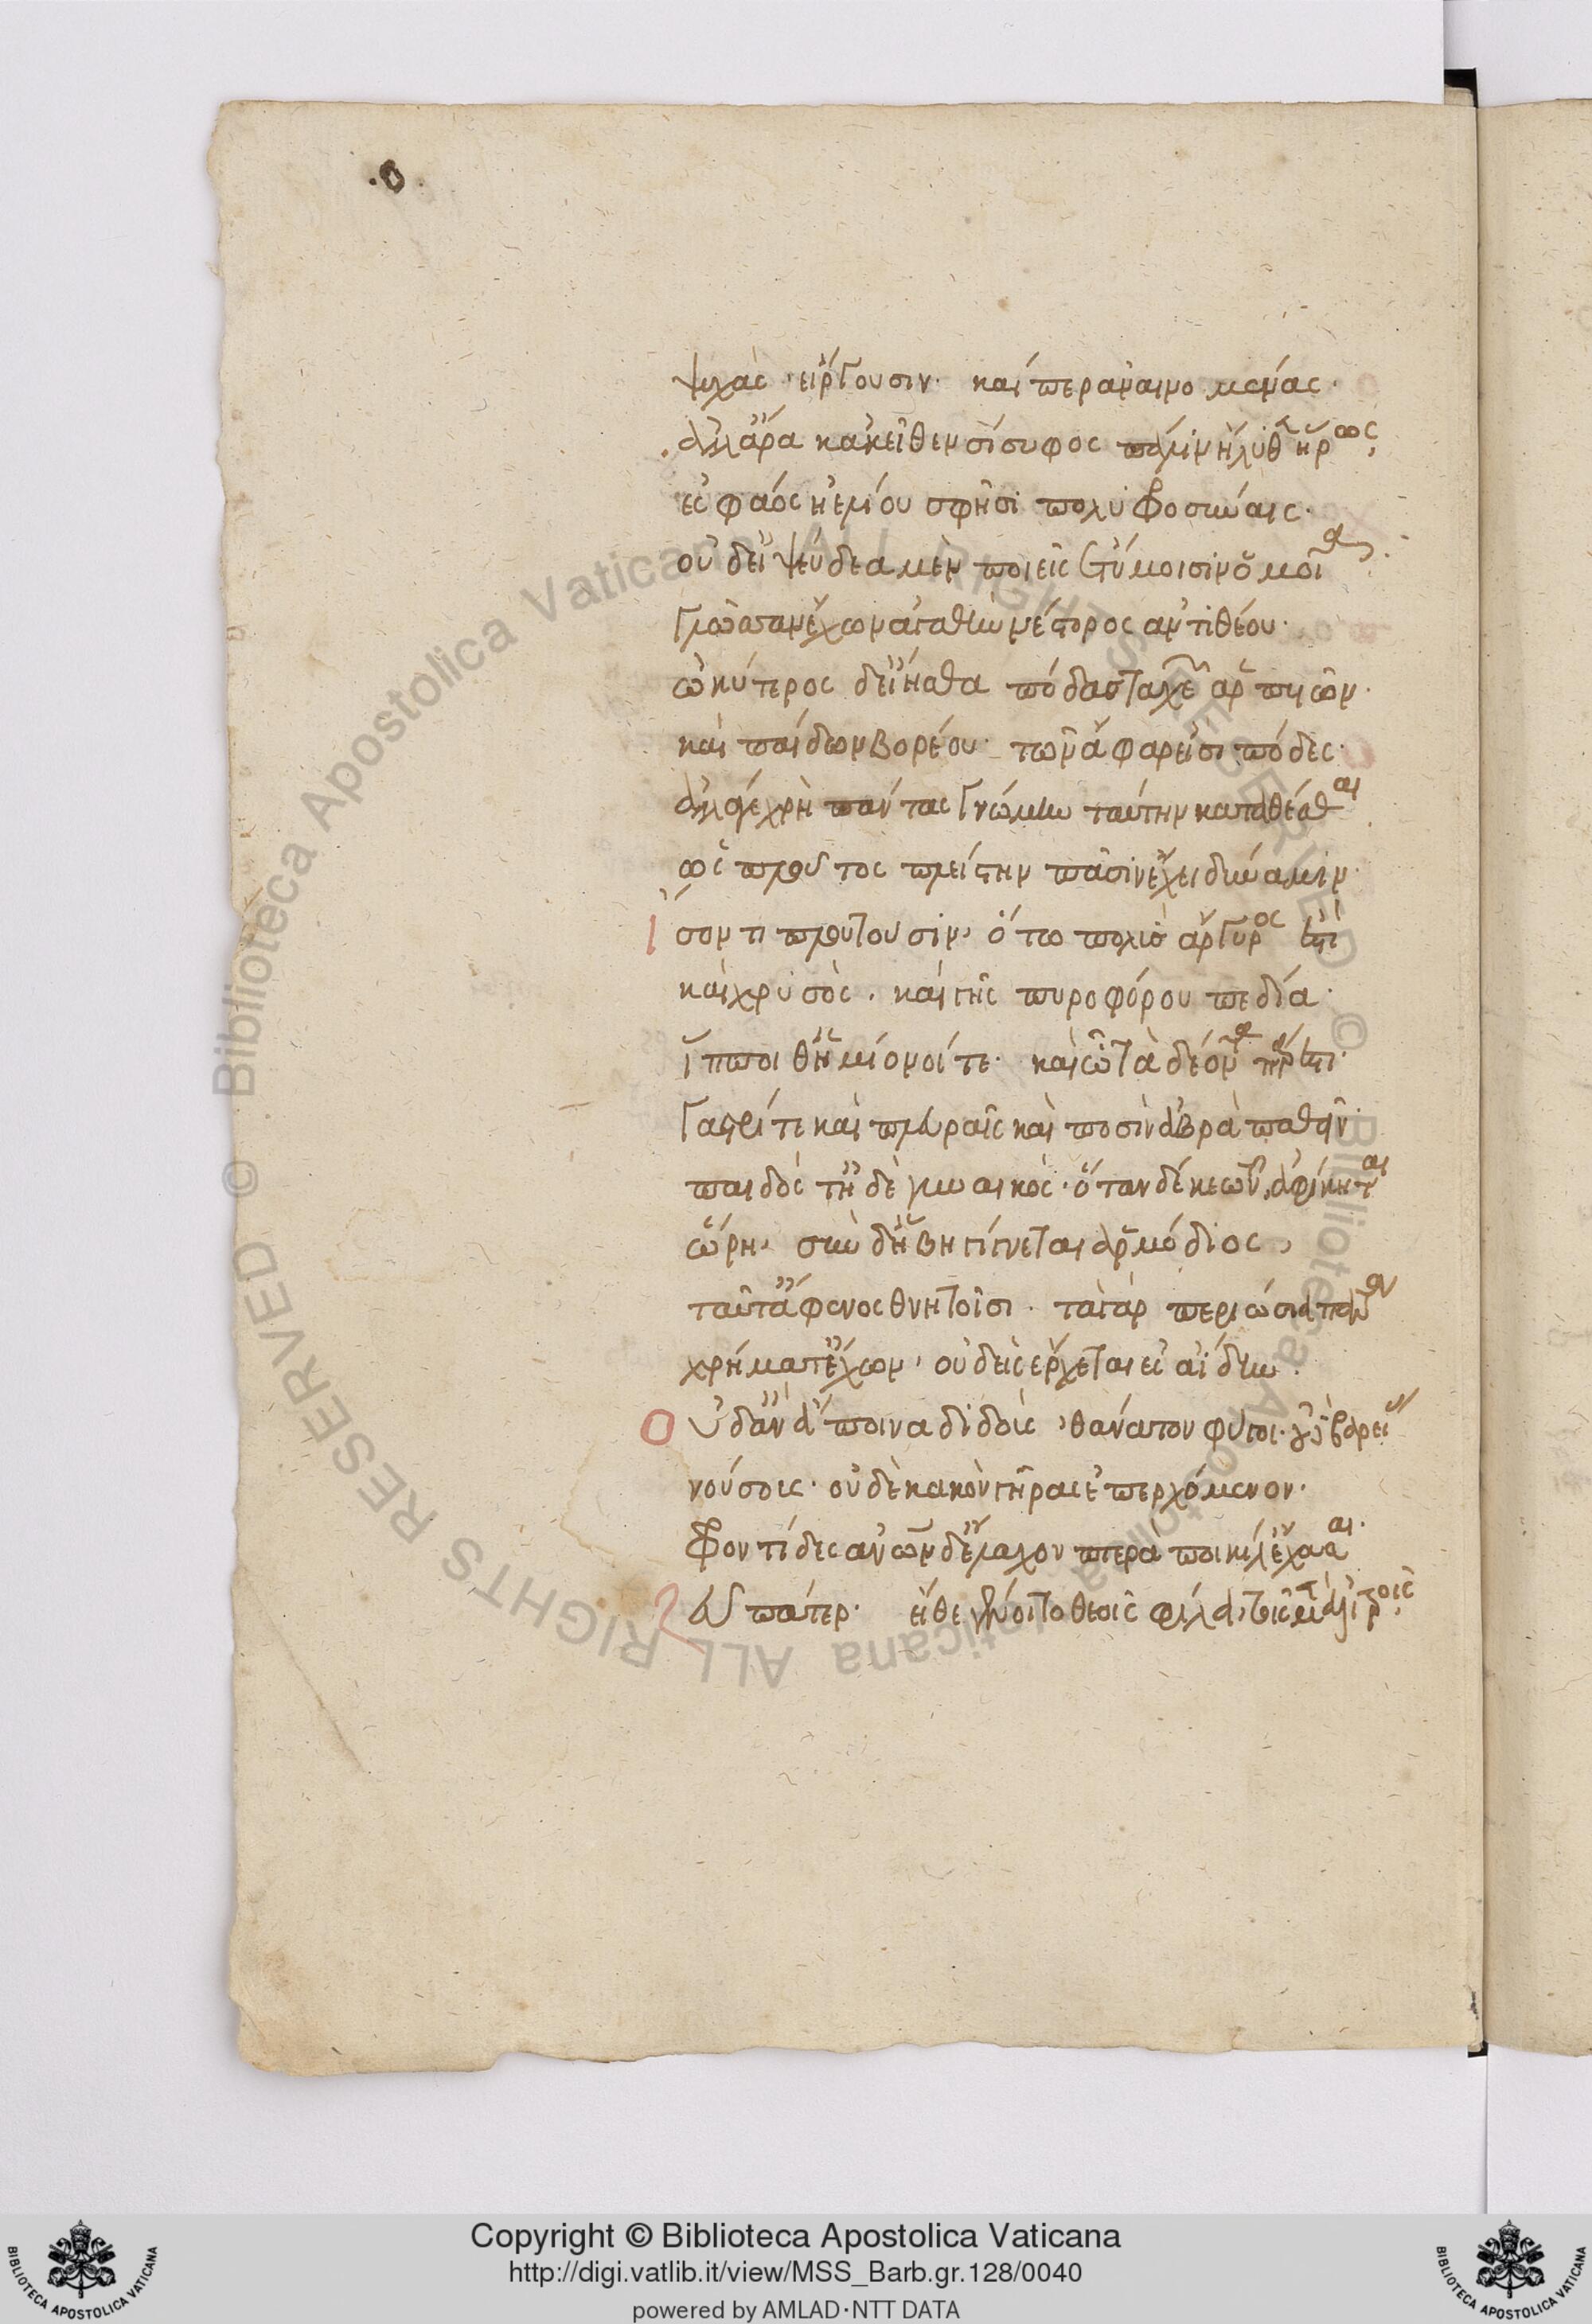 .ο.
ψυχὰς εἴργουσιν· καίπερ ἀναινομένας·
ἀλλ' ἄρα κἀκεῖθεν σίσυφος πάλιν ἤλυθεν ἥρωος,
ἐς φάος ἠελίου σφῆσι πολυφροσύναις·
οὐδ' εἰ ψεύδεα μὲν ποιεῖς ἐτύμοισιν ὁμοῖα·
γλῶσσαν ἔχων ἀγαθὴν νέστορος ἀντιθέου·
ὠκύτερος δ' εἴησθα πόδας ταχεῶν ἁρπυιῶν·
καὶ παίδων βορέου· τῶν ἄφαρ εἰσι πόδες·
ἀλλὰ χρὴ πάντας γνώμην ταύτην καταθέσθαι
ὡς πλοῦτος πλείστην πᾶσιν ἔχει δύναμιν·
ἶσόν τι πλουτοῦσιν, ὅτω πολὺς ἄργυρος ἐστὶ
καὶ χρυσὸς. καὶ γῆς πυροφόρου πεδία·
ἵπποι θ' ἡμίονοί τε· καὶ ᾧ τὰ δέοντα πάρεστι·
γαστρί τε καὶ πλευραῖς καὶ ποσὶν ἁβρὰ παθεῖν·
παιδός τ' ἠδὲ γυναικός· ὅταν δέ κε τῶν ἀφίκηται
ὥρη, σὺν δ' ἥβη γίγνεται ἁρμόδιος,
ταῦτ' ἄφενος θνητοῖσι· τὰ γὰρ περιώσια πάντων
χρήματ' ἔχων, οὐδεὶς ἔρχεται εἰς ἀίδην·
Οὐδ' ἂν ἄποινα διδοὺς, θάνατον φύγοι· οὐδὲ βαρείας
νούσους· οὐδὲ κακὸν γῆρας ἐπερχόμενον·
Φροντίδες ἀνθρώπων δ' ἔλαχον πτερὰ ποικίλ' ἔχουσαι·
Ζεῦ πάτερ· εἴθε γένοιτο θεοῖς φίλα, τοῖς μὲν ἀλιτροῖς,
Copyright © Biblioteca Apostolica Vaticana
http://digi.vatlib.it/view/MSS_Barb.gr.128/0040
powered by AMLAD·NTT DATA
BIBLIOTECA APOSTOLICA VATICANA
BIBLIOTECA APOSTOLICA VATICANA
© Biblioteca Apostolica Vaticana ALL RIGHTS RESERVED © Biblioteca Apostolica Vaticana ALL RIGHTS RESERVED